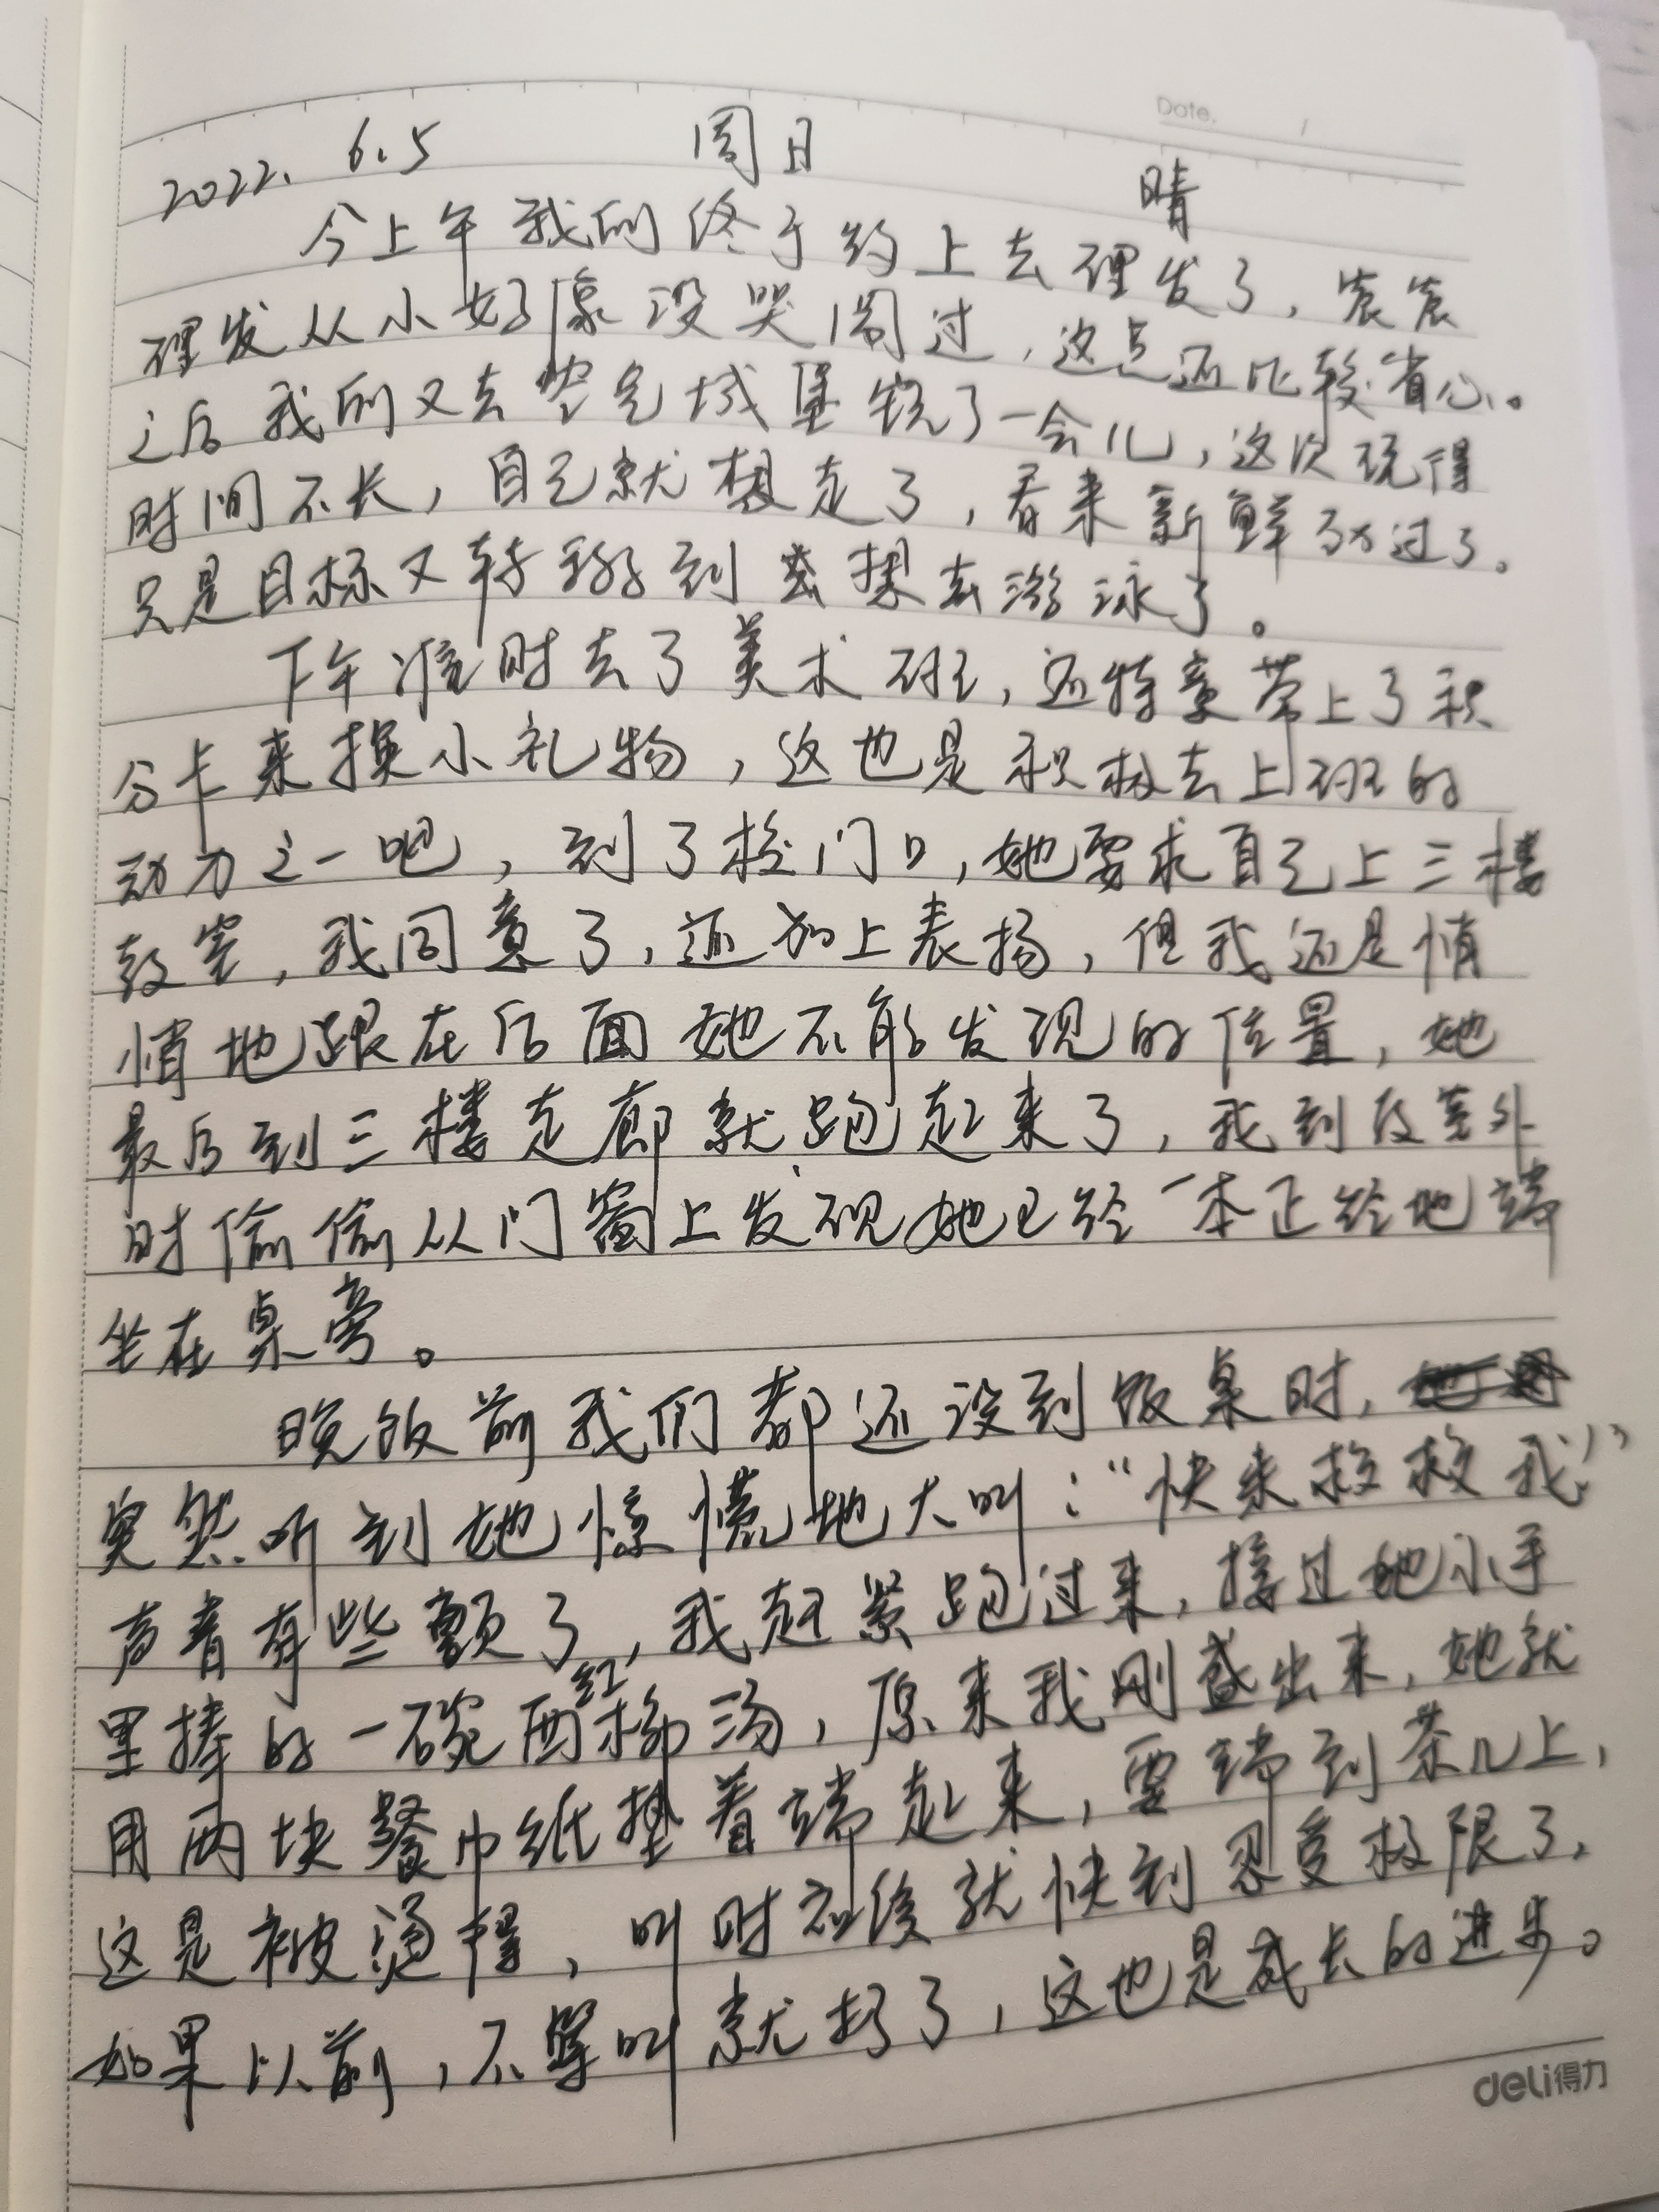 Date.
2022. 6.5 周日 晴
今上午我们终于约上去理发了，宸宸
理发从小好像没哭闹过，这点还比较省心。
之后我们又去空气城堡玩了一会儿，这次玩得
时间不长，自己就想走了，看来新鲜劲过了。
只是目标又转移到想去游泳了。
下午准时去了美术班，还特意带上了积
分卡来换小礼物，这也是积极去上班的
动力之一吧，到了校门口，她要求自己上三楼
教室，我同意了，还加上表扬，但我还是悄
悄地跟在后面她不能发现的位置，她
最后到三楼走廊就跑起来了，我到教室外
时偷偷从门窗上发现她已经一本正经地端
坐在桌旁。
晚饭前我们都还没到饭桌时，
突然听到她惊慌地大叫：“快来救救我！”
声音有些颤了，我赶紧跑过来，接过她小手
里捧的一碗西红柿汤，原来我刚盛出来，她就
用两块餐巾纸垫着端起来，要端到茶几上，
这是被烫得，叫时应该就快到忍受极限了，
如果以前，不等叫就扔了，这也是成长的进步。
deli得力